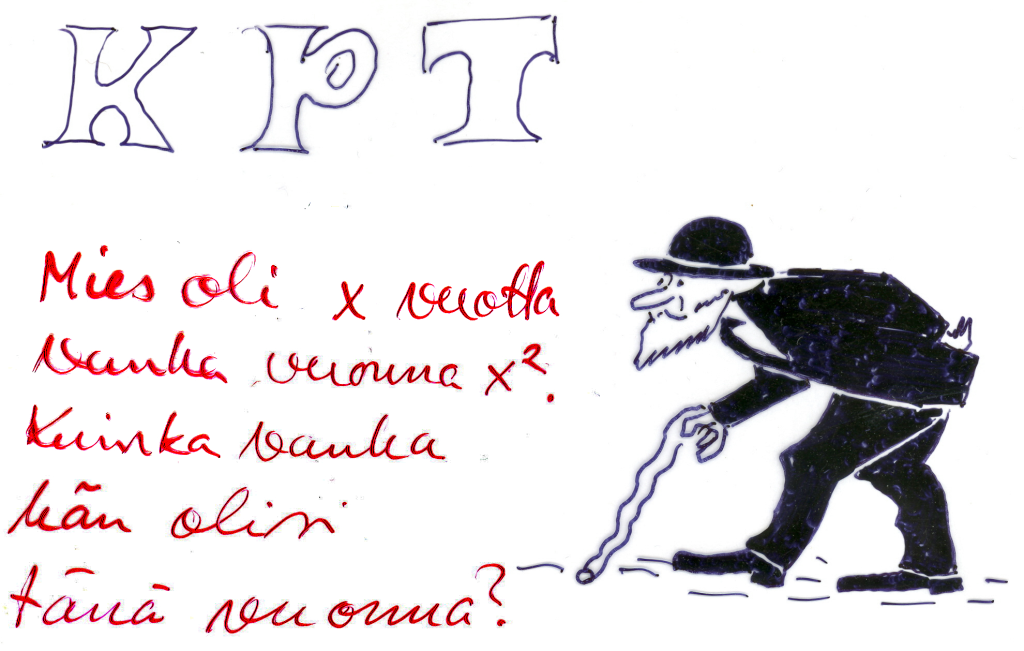 KPT
Mies oli x vuotta
vanha vuonna x².
Kuinka vanha
hän olisi
tänä vuonna?